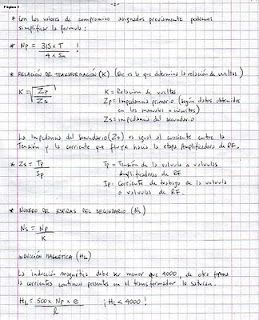 Página 2
-2-
* Con los valores de compromiso asignados previamente podemos
simplificar la formula:
* Np = 315 x T / 4 x Sm !
* RELACION DE TRANSFORMACION (K) (Es es lo que determina la relación de vueltas)
K = √ Zp / Zs K = Relacion de vueltas
Zp = Impedancia primario (según datos obtenidos
en los manuales o calculos)
Zs = Impedancia del secundario
La Impedancia del secundario (Zs) es igual al cociente entre la
Tensión y la corriente que fluye hacia la etapa Amplificadora de RF.
* Zs = Tp / Ip Tp = Tensión de la valvula o valvulas
Amplificadoras de RF.
Ip = Corriente de trabajo de la valvula
o valvulas de RF.
* NUMERO DE ESPIRAS DEL SECUNDARIO (Ns)
Ns = Np / K
INDUCCION MAGNETICA (HL)
La inducción magnética debe ser menor que 4000, de otra forma
la corriente continua presente en el transformador lo satura.
HL = 500 x Np x e / l ¡ HL < 4000 !